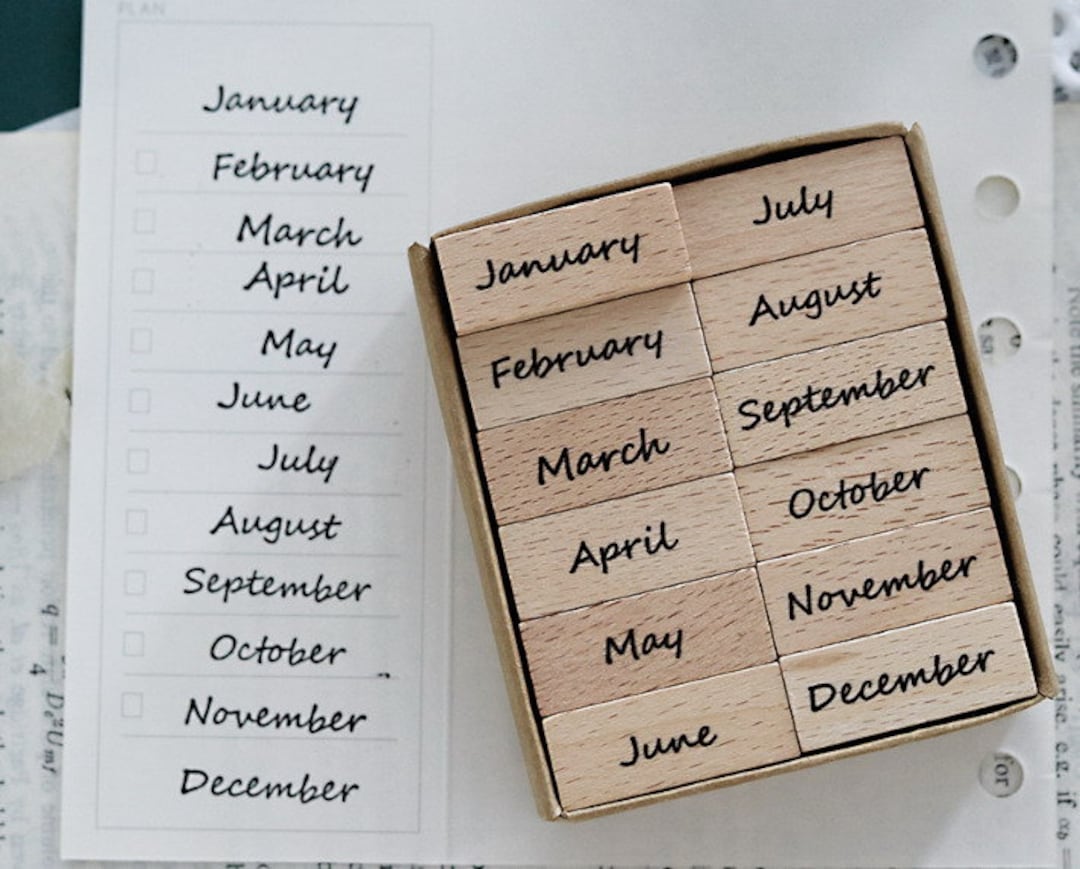 PLAN
January
February
March
April
May
June
July
August
September
October
November
December
January
February
March
April
May
June
July
August
September
October
November
December
for